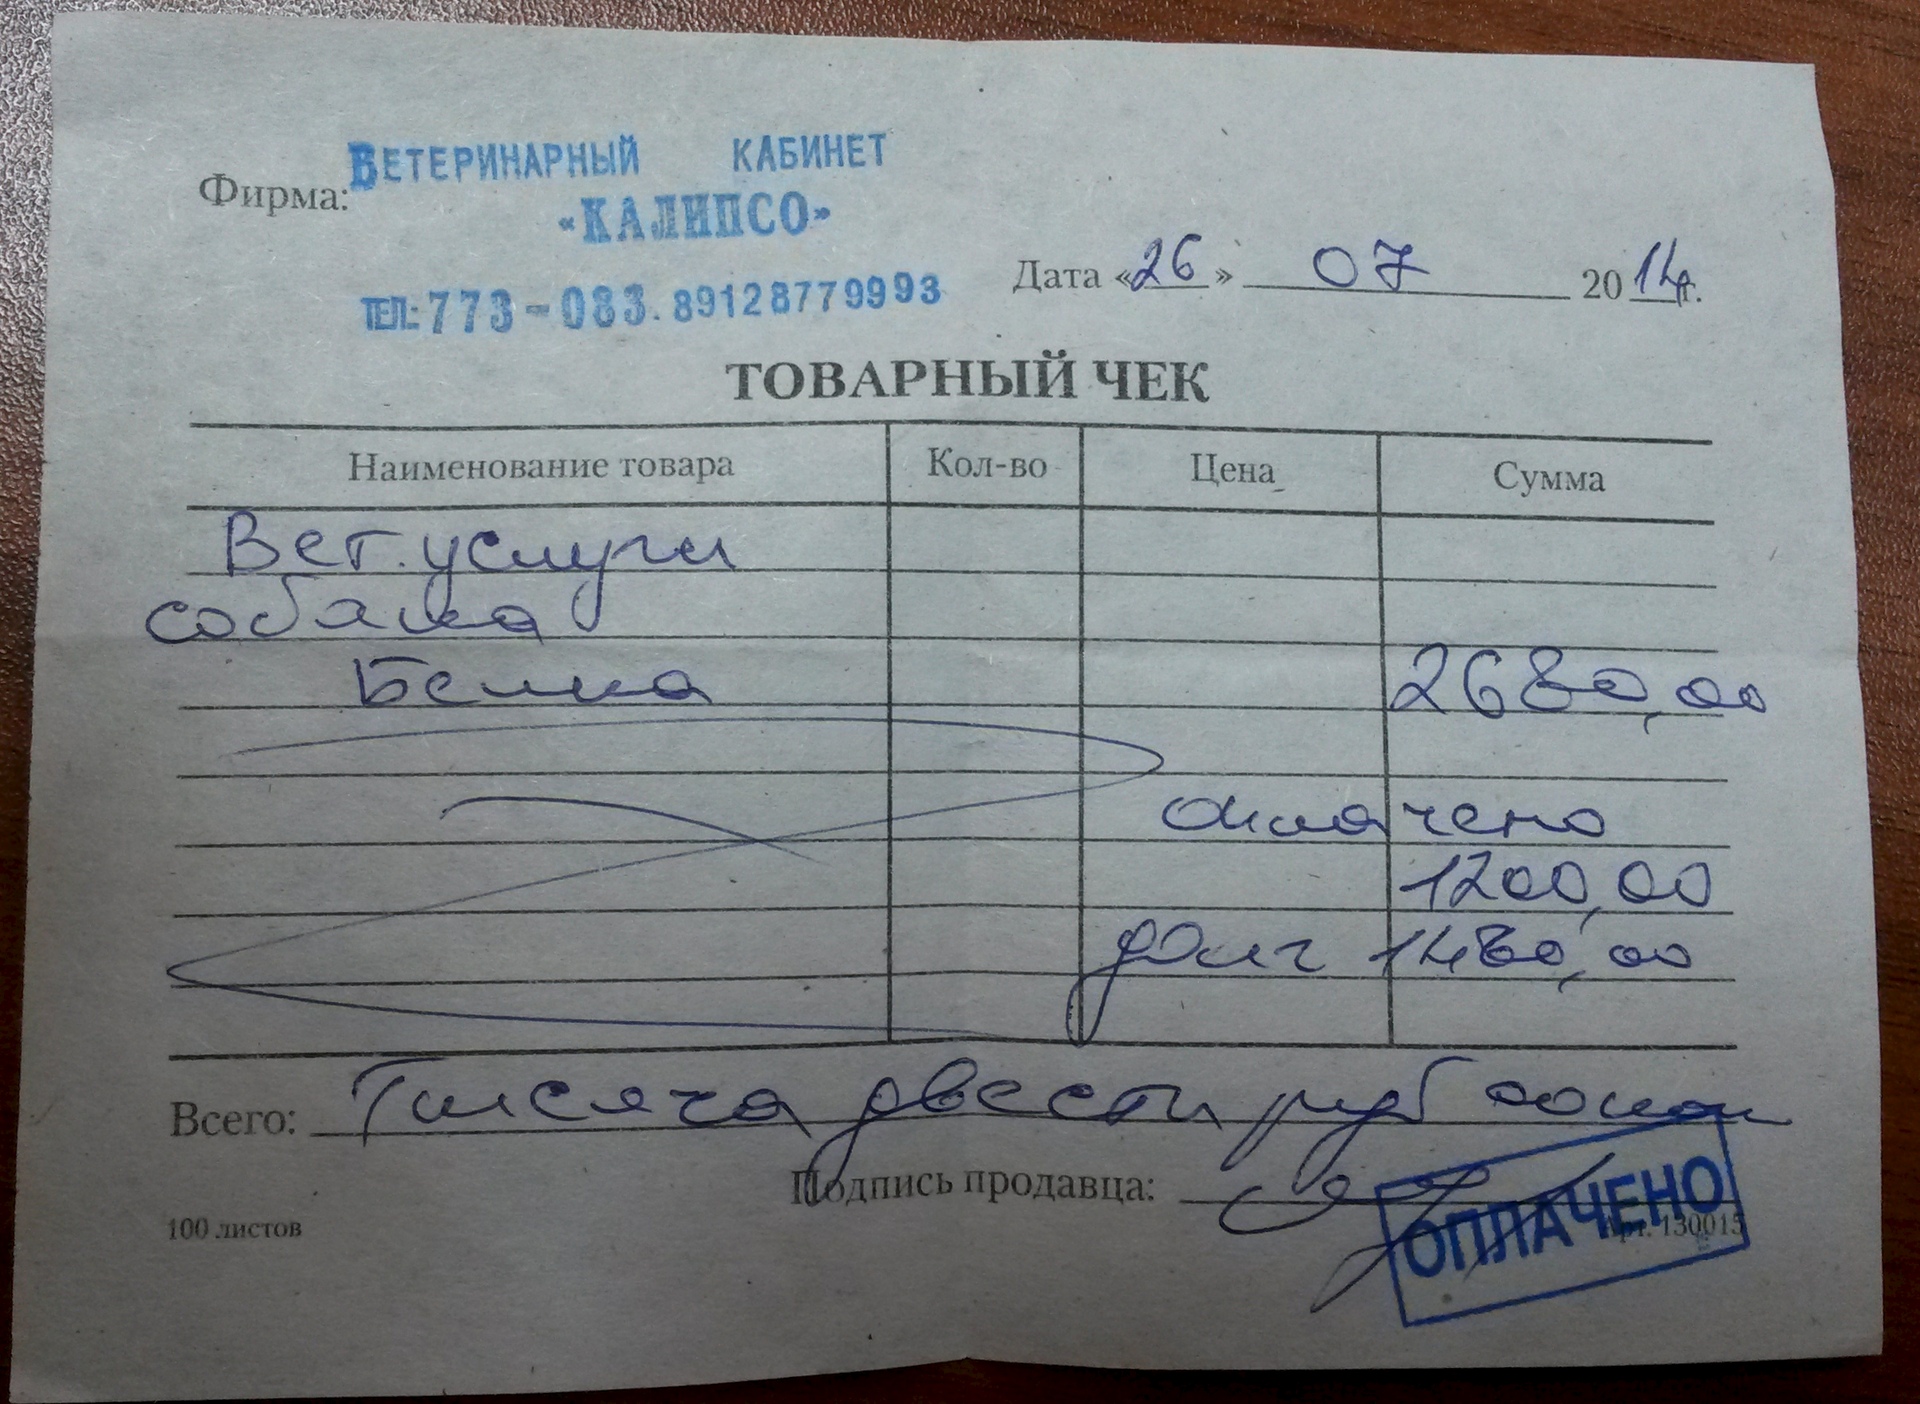 ВЕТЕРИНАРНЫЙ КАБИНЕТ
Фирма: «КАЛИПСО»
Дата «26» 07 2014г.
ТЕЛ: 773-083. 89128779993
ТОВАРНЫЙ ЧЕК
Наименование товара Кол-во Цена Сумма
Вет. услуги
собака
Белка 2680,00
оплачено
1200,00
долг 1480,00
Всего: Тысяча двести руб 00 коп
Подпись продавца:
ОПЛАЧЕНО
100 листов Арт. 130015